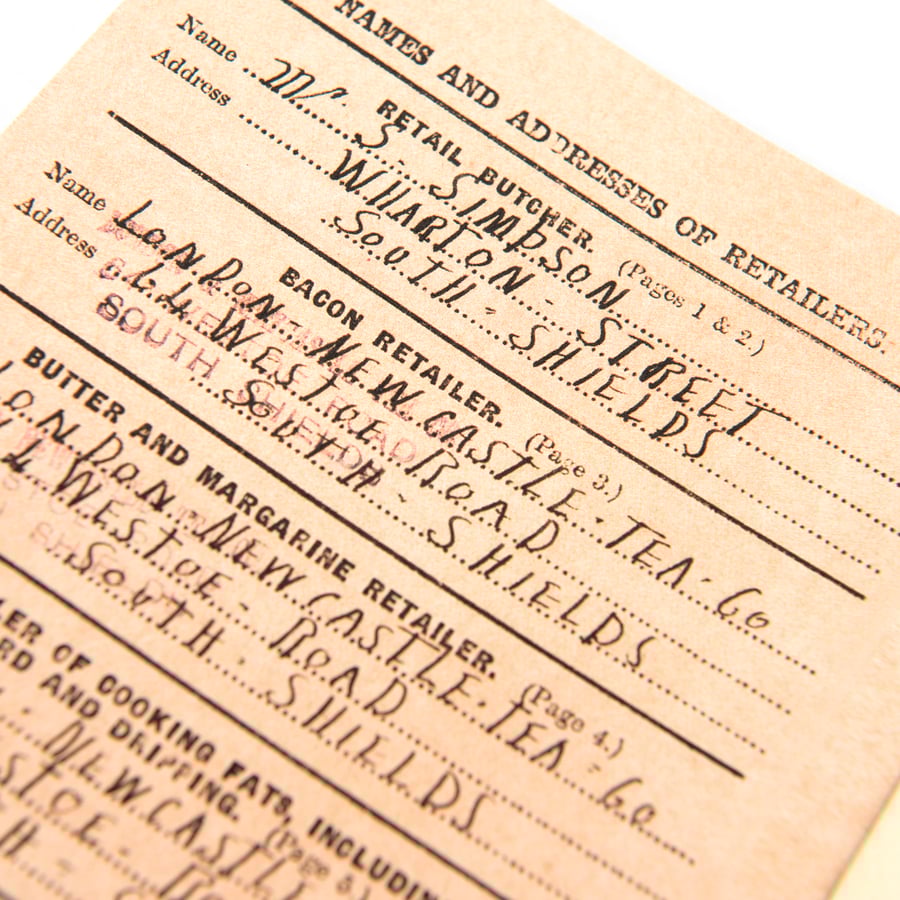 NAMES AND ADDRESSES OF RETAILERS.
RETAIL BUTCHER. (Pages 1 & 2.)
Name Mr. S. SIMPSON
Address WHARTON - STREET
SOUTH - SHIELDS
BACON RETAILER. (Page 3.)
Name LONDON NEWCASTLE. TEA. Co
Address WESTOE ROAD
SOUTH - SHIELDS
SOUTH SHIELDS
BUTTER AND MARGARINE RETAILER. (Page 4.)
ONDON NEWCASTLE. TEA - Co
WESTOE - ROAD
SOUTH. SHIELDS
LER OF COOKING FATS, INCLUDIN
RD AND DRIPPING. (Page 5.)
NEWCASTL
STOE -
H -